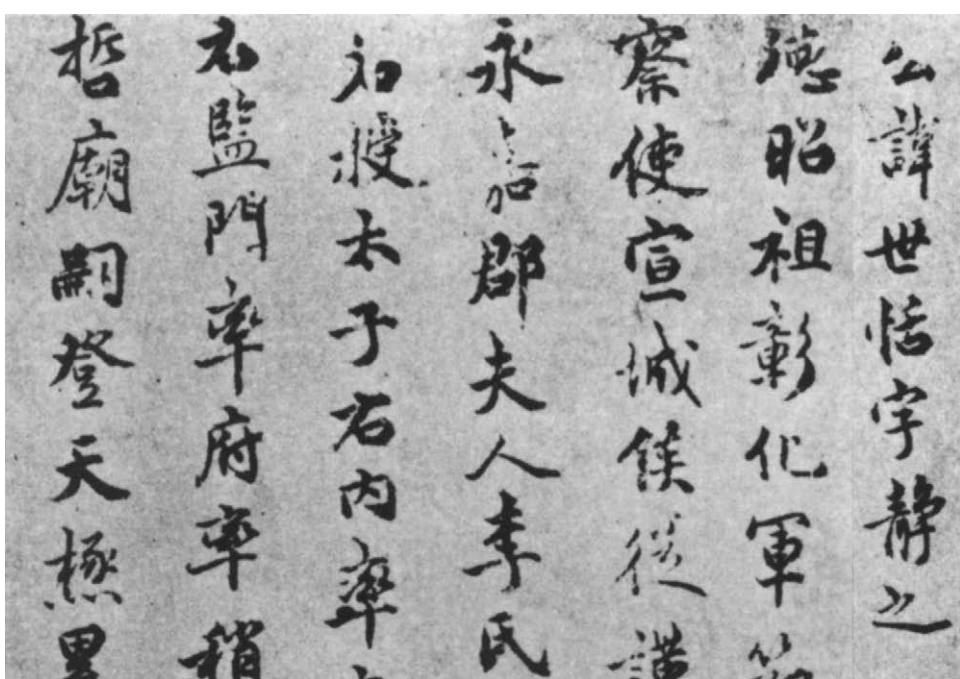 公諱世恬字靜之
德昭祖彰化軍節
察使宣城侯從講
永嘉郡夫人李氏
初授太子右內率
右監門率府率稍
哲廟嗣登天極累